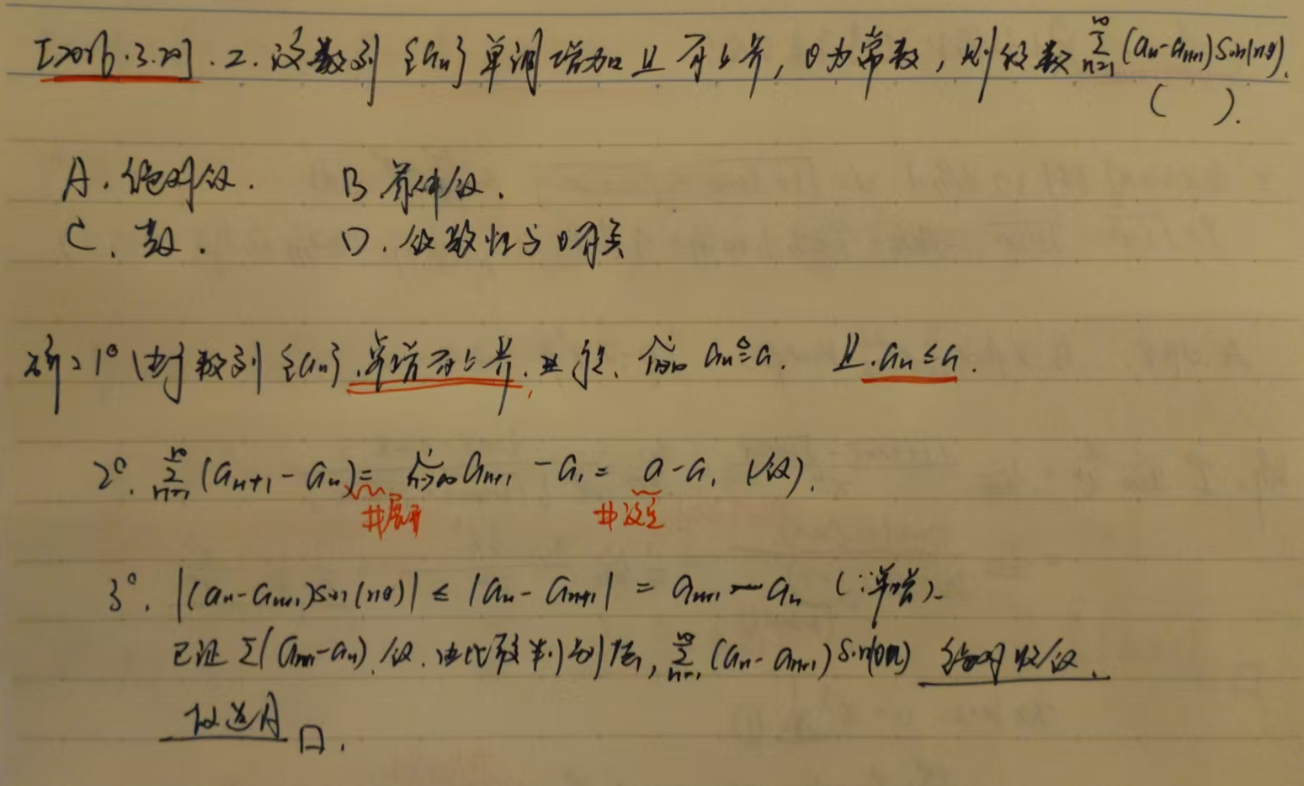 [2016.3.20]. 2. 设数列 {aₙ} 单调增加且有上界, θ为常数, 则级数 ∑_{n=1}^{∞} (aₙ-aₙ₊₁)sin(nθ).
( ).
A. 绝对收. B 条件收.
C. 散. D. 收敛性与θ有关
解: 1° 由于数列 {aₙ}, 单增有上界, lim_{n→∞} aₙ = a. 且. aₙ ≤ a.
2°. ∑_{n=1}^{∞} (aₙ₊₁ - aₙ) = lim_{n→∞} aₙ₊₁ - a₁ = a - a₁ (收).
#展开 #设定
3°. |(aₙ-aₙ₊₁)sin(nθ)| ≤ |aₙ - aₙ₊₁| = aₙ₊₁ - aₙ (∵单增).
已证 ∑(aₙ₊₁-aₙ) 收. 由比较判别法, ∑_{n=1}^{∞} (aₙ-aₙ₊₁) sin(θn) 绝对收敛.
故选A 口.